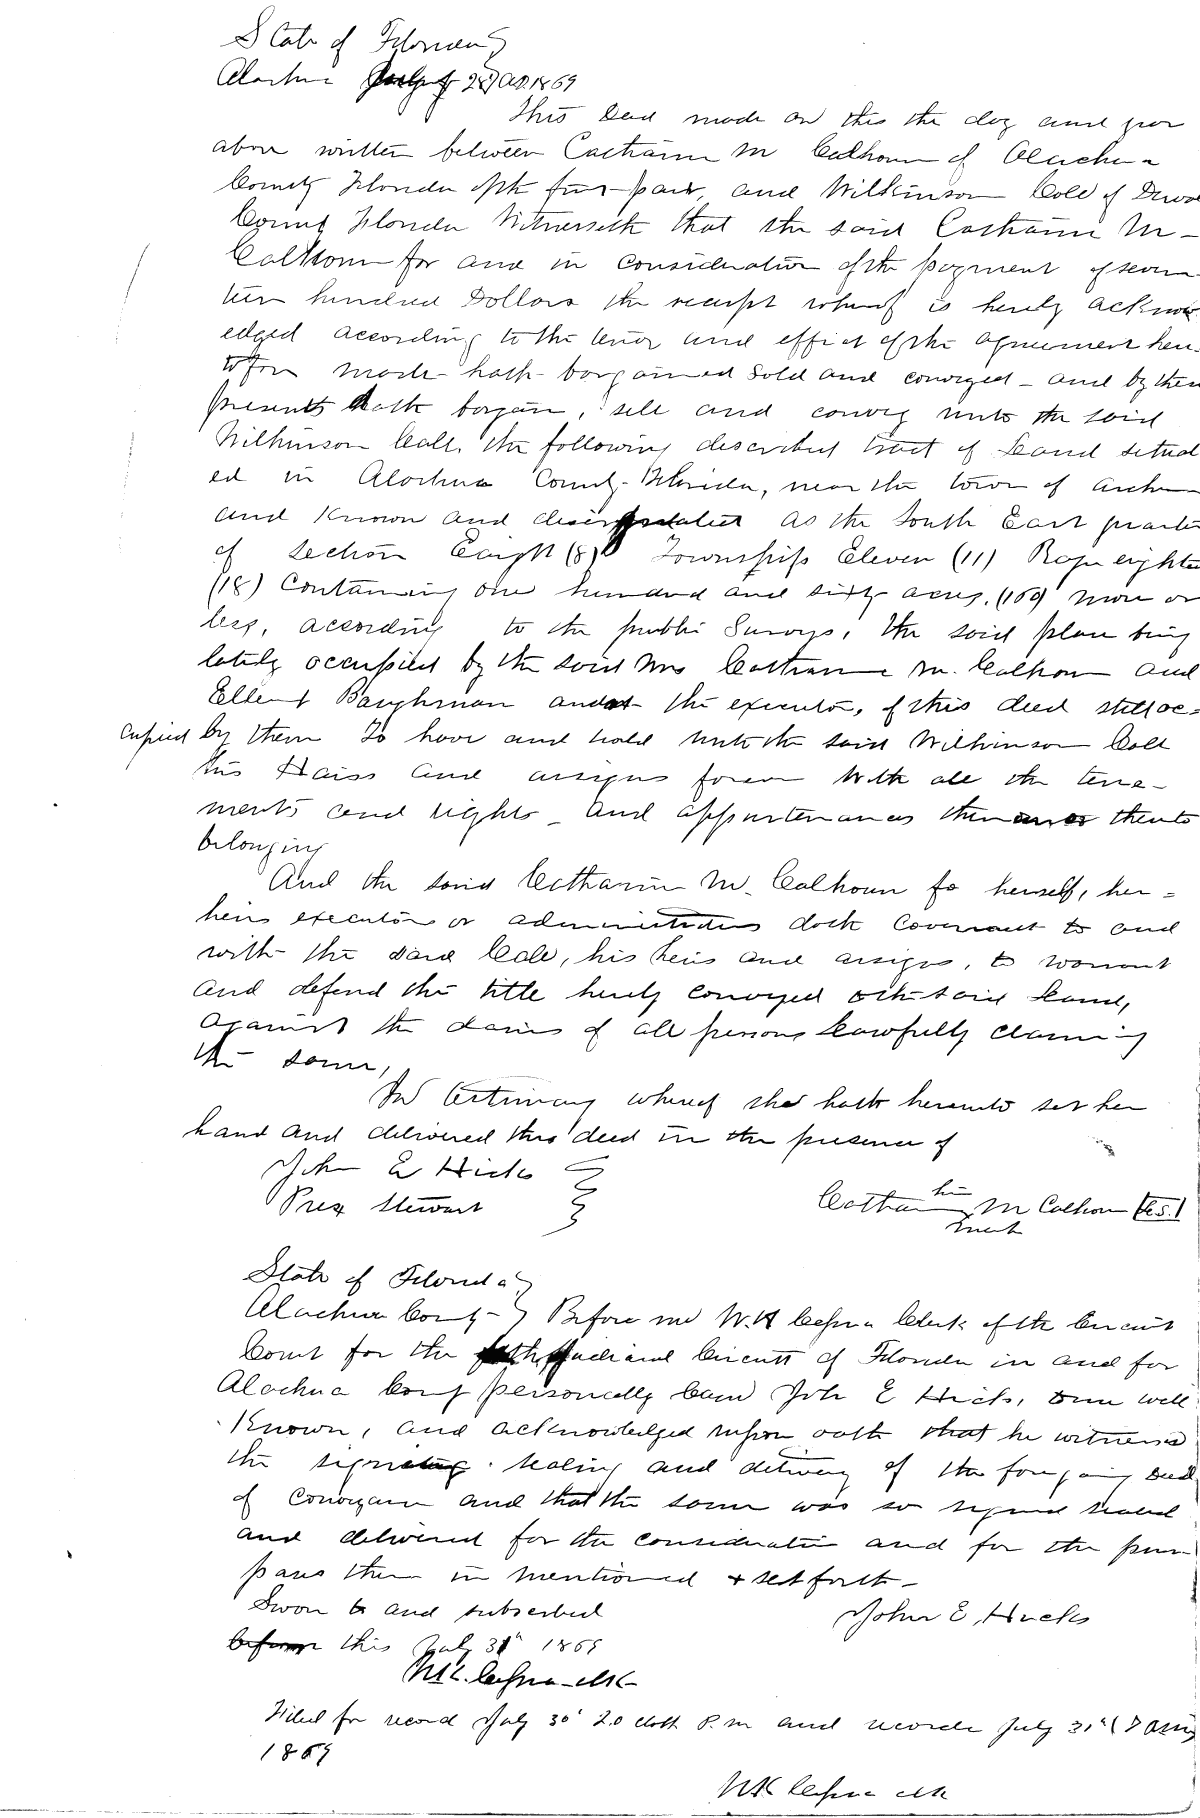 State of Florida
Alachua July 28 AD 1869
This Deed made on this the day and year
above written between Catharin M Calhoun of Alachua
County Florida of the first part, and Wilkinson Call of Duval
County Florida Witnesseth that the said Catharin M
Calhoun for and in consideration of the payment of seven
teen hundred Dollars the receipt whereof is hereby acknow
edged according to the tenor and effect of the agreement here
tofore made hath bargained Sold and conveyed - and by these
presents hath bargain, sell and convey unto the said
Wilkinson Call, the following described tract of Land situat
ed in Alachua County Florida, near the town of Archer
and Known and as the South East quarter
of Section Eaight (8) Township Eleven (11) Range eighteen
(18) Containing one hundred and sixty acres, (160) more or
less, according to the public Surveys, the said place being
lately occupied by the said Mrs Catharine M. Calhoun and
Elbert Baughman and at the execution, of this deed still oc=
cupied by them To have and hold unto the said Wilkinson Call
his Hairs and assigns forever With all the tene-
ments and rights - and appurtenances thereunto
belonging
And the said Catharin M. Calhoun for herself, her =
heirs executors or administrators doth Covenant to and
with the said Call, his heirs and assigns, to warrant
and defend the title hereby conveyed of the said Land,
against the claims of all persons Lawfully claiming
the same,
In testimony whereof she hath hereunto set her
hand and delivered this deed in the presence of
John E Hicks
Prex Stewart
her
Catharin M Calhoun (L.S.)
mark
State of Florida
Alachua County Before me W.K Cessna Clerk of the Circuit
Court for the Judicial Circuit of Florida in and for
Alachua County personally Came John E Hicks, to me well
Known, and acknowledged upon oath that he witnessed
the signing sealing and delivery of the foregoing Deed
of conveyance and that the same was so signed sealed
and delivered for the consideration and for the pur
poses therein mentioned + set forth -
Sworn to and subscribed
John E. Hicks
before this July 31st 1869
W.K. Cessna Clk
Filed for record July 30' 2.0 clock P.m and recorded July 31st
1869
W K Cessna Clk